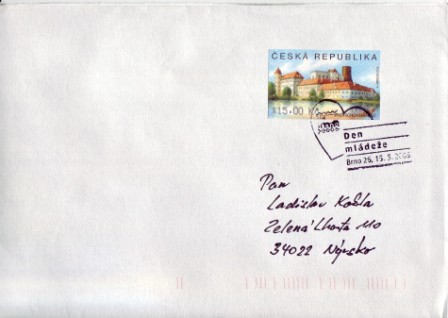 ČESKÁ REPUBLIKA
15.00 Kč
Den
mládeže
Brno 26, 15.5.2005
Pan
Ladislav
Zelená Lhota 110
34022 Nýrsko